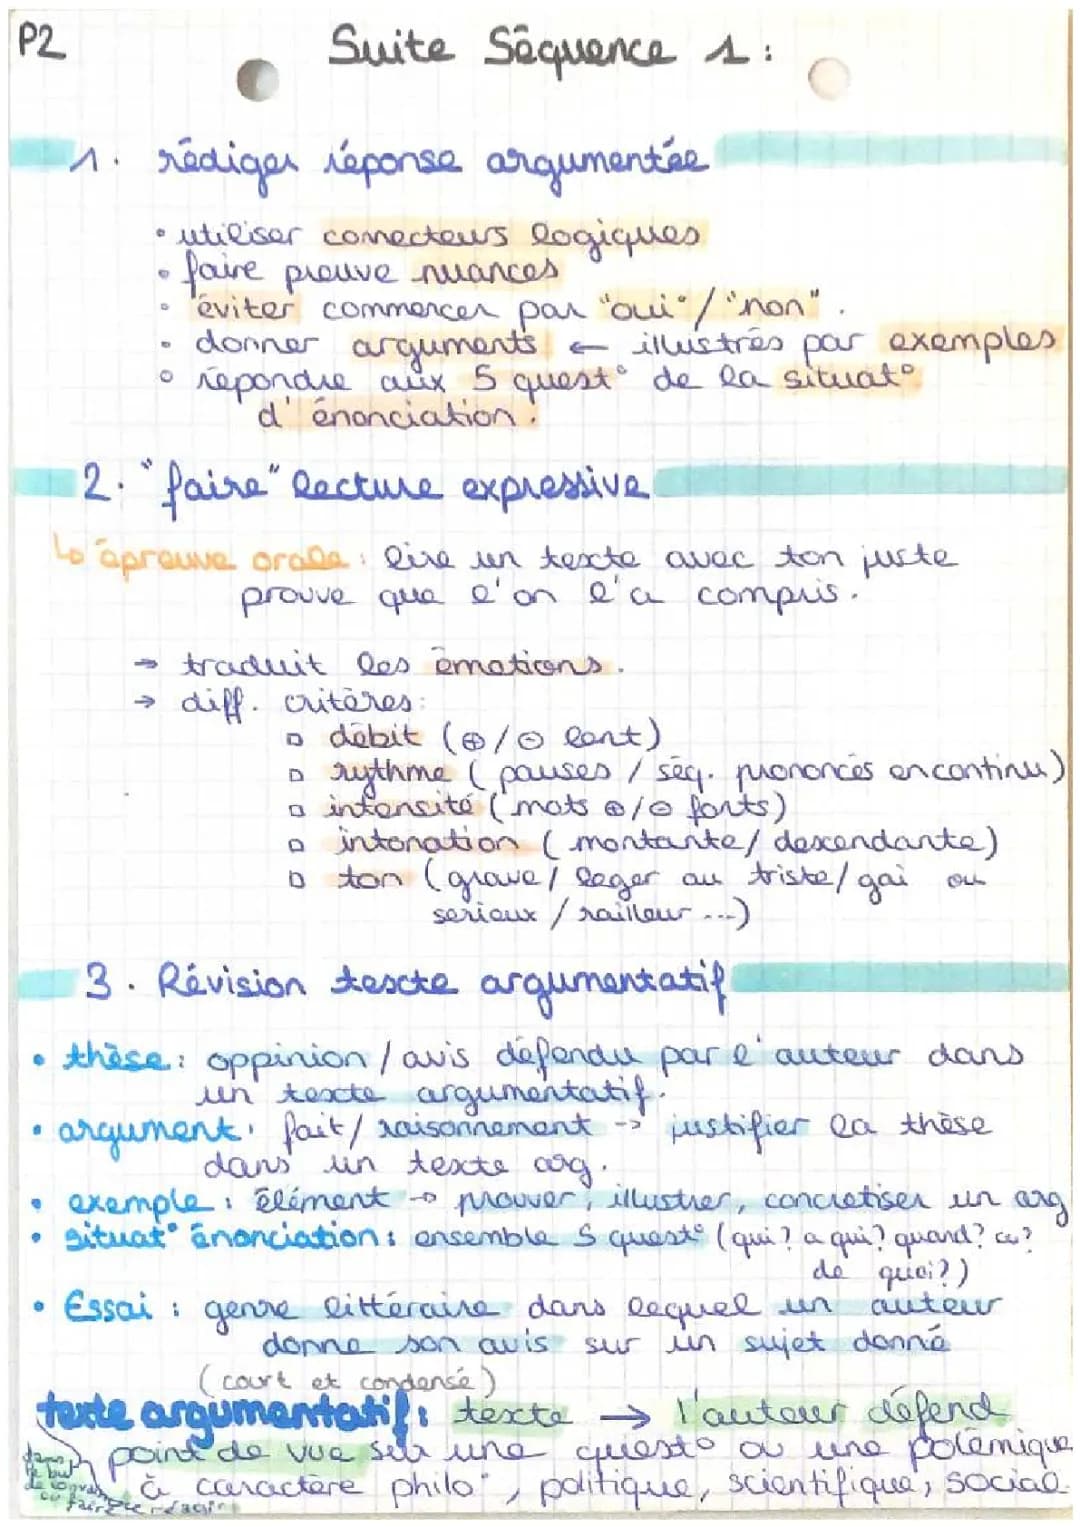 P2
Suite Séquence 1 :
1. rédiger réponse argumentée
• utiliser connecteurs logiques
• faire preuve nuances
• éviter commencer par "oui"/"non".
• donner arguments ← illustrés par exemples
• répondre aux 5 quest° de la situat°
d'énonciation.
2. "faire" lecture expressive
↳ épreuve orale : lire un texte avec ton juste
prouve que l'on l'a compris.
→ traduit les émotions.
→ diff. critères:
▫ débit (⊕/⊖ lent)
▫ rythme (pauses / séq. prononcés en continu)
▫ intensité (mots ⊕/⊖ forts)
▫ intonation (montante/descendante)
▫ ton (grave/ leger ou triste/gai ou
serieux / railleur ...)
3. Révision texte argumentatif
• thèse : oppinion / avis défendu par l'auteur dans
un texte argumentatif.
• argument : fait/ raisonnement → justifier la thèse
dans un texte arg.
• exemple : élément → prouver, illustrer, concretiser un arg
• situat° énonciation : ensemble 5 quest° (qui? a qui? quand? où?
de quoi?)
• Essai : genre littéraire dans lequel un auteur
donne son avis sur un sujet donné
(court et condensé)
texte argumentatif : texte → l'auteur défend
point de vue sur une quest° ou une polémique
à caractère philo°, politique, scientifique, social.
dans
le but
de convaincre
ou faire réagir